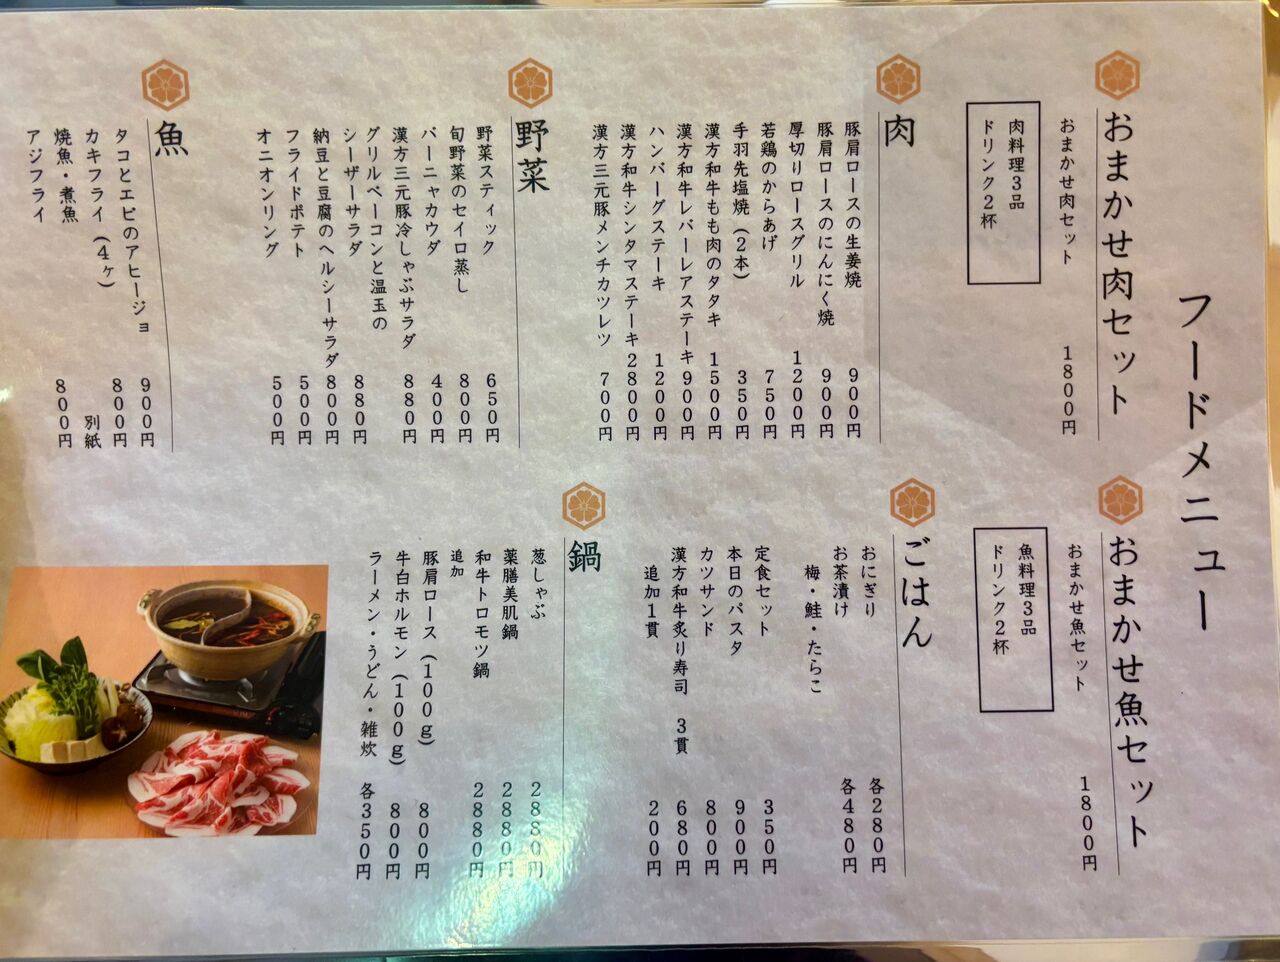 フードメニュー
おまかせ肉セット
おまかせ肉セット 1800円
肉料理3品
ドリンク2杯
肉
豚肩ロースの生姜焼 900円
豚肩ロースのにんにく焼 900円
厚切りロースグリル 1200円
若鶏のからあげ 750円
手羽先塩焼(2本) 350円
漢方和牛もも肉のタタキ 1500円
漢方和牛レバーレアステーキ 900円
ハンバーグステーキ 1200円
漢方和牛シンタマステーキ 2800円
漢方三元豚メンチカツレツ 700円
野菜
野菜スティック 650円
旬野菜のセイロ蒸し 800円
バーニャカウダ 400円
漢方三元豚冷しゃぶサラダ 880円
グリルベーコンと温玉の
シーザーサラダ 880円
納豆と豆腐のヘルシーサラダ 800円
フライドポテト 500円
オニオンリング 500円
魚
タコとエビのアヒージョ 900円
カキフライ(4ヶ) 800円
焼魚・煮魚 別紙
アジフライ 800円
おまかせ魚セット
おまかせ魚セット 1800円
魚料理3品
ドリンク2杯
ごはん
おにぎり 各280円
お茶漬け 各480円
梅・鮭・たらこ
定食セット 350円
本日のパスタ 900円
カツサンド 800円
漢方和牛炙り寿司 3貫 680円
追加1貫 200円
鍋
葱しゃぶ 2880円
薬膳美肌鍋 2880円
和牛トロモツ鍋 2880円
追加
豚肩ロース(100g) 800円
牛白ホルモン(100g) 800円
ラーメン・うどん・雑炊 各350円